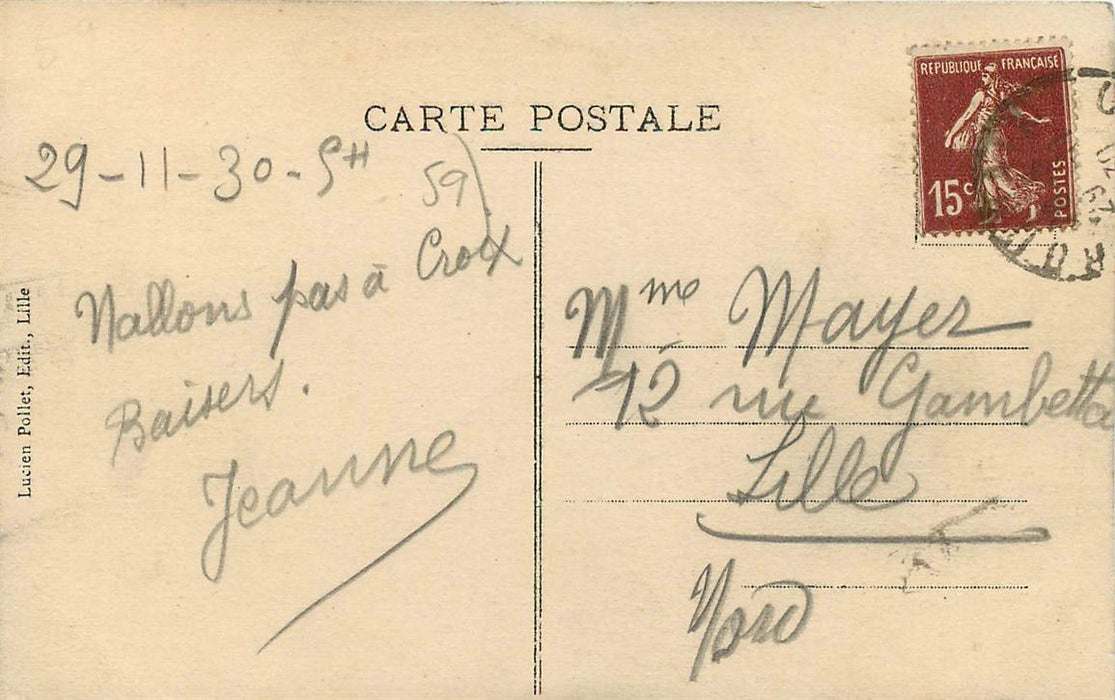 CARTE POSTALE
29-11-30-5H
59
Nallons pas à Croix
Baisers.
Jeanne
Lucien Pollet, Edit., Lille
RÉPUBLIQUE FRANÇAISE
15c
POSTES
Mme Mayer
12 rue Gambetta
Lille
Nord